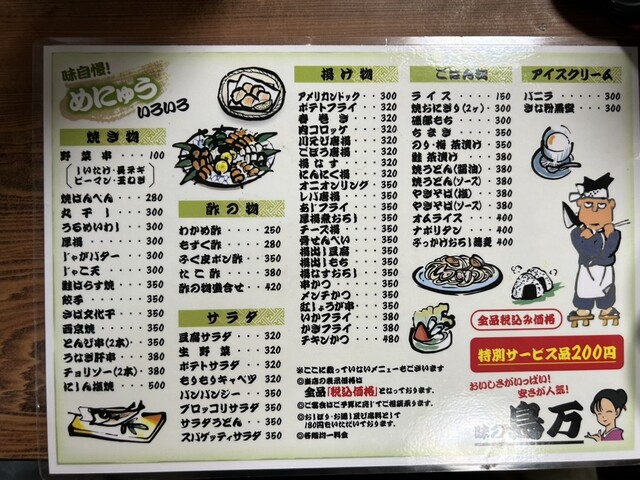 味自慢!
めにゅう
いろいろ
焼き物
野菜串・・100
しいたけ・長ネギ
ピーマン・玉ねぎ
焼はんぺん・・280
丸干し・・・300
うるめいわし・・300
厚揚・・・・300
じゃがバター・・300
じゃこ天・・・300
鮭はらす焼・・350
餃子・・・・350
さば文化干・・350
西京焼・・・350
とんび串(2本)・350
うなぎ肝串・・380
チョリソー(2本)・380
にしん塩焼・・500
酢の物
わかめ酢・・・250
もずく酢・・・280
ふぐ皮ポン酢・・350
たこ酢・・・380
酢の物盛合せ・・420
サラダ
豆腐サラダ・・320
生野菜・・・320
ポテトサラダ・・320
もりもりキャベツ・320
バンバンジー・・350
ブロッコリサラダ・350
サラダうどん・・350
スパゲッティサラダ・350
揚げ物
アメリカンドック・・300
ポテトフライ・・300
春巻き・・・320
肉コロッケ・・320
川えび唐揚・・320
ごぼう唐揚・・320
揚なす・・・320
にんにく揚・・320
オニオンリング・・350
レバ唐揚・・・350
あじフライ・・350
厚揚煮おろし・・350
チーズ揚・・・350
骨せんべい・・350
揚出し豆腐・・350
揚出しもち・・350
揚なすおろし・・350
串かつ・・・350
メンチかつ・・350
紅しょうが串・・350
いかフライ・・380
かきフライ・・380
チキンかつ・・480
ごはん物
ライス・・・150
焼おにぎり(2ヶ)・300
磯部もち・・・300
ちまき・・・350
のり・梅 茶漬け・350
鮭 茶漬け・・380
焼うどん(醤油)・380
焼うどん(ソース)・380
やきそば(塩)・380
やきそば(ソース)・380
オムライス・・400
ナポリタン・・400
ぶっかけおろし蕎麦・400
アイスクリーム
バニラ・・・300
きな粉黒蜜・・300
全品税込み価格
特別サービス品200円
おいしさがいっぱい!
安さが人気!
味の鳥万
※ここに載っていないメニューもございます
◎当店の表示価格は
全品「税込価格」となっております。
◎ご宴会はご予算に応じてご相談承ります。
◎おしぼり・お通し及び席料として
180円をいただいております。
◎各階均一料金